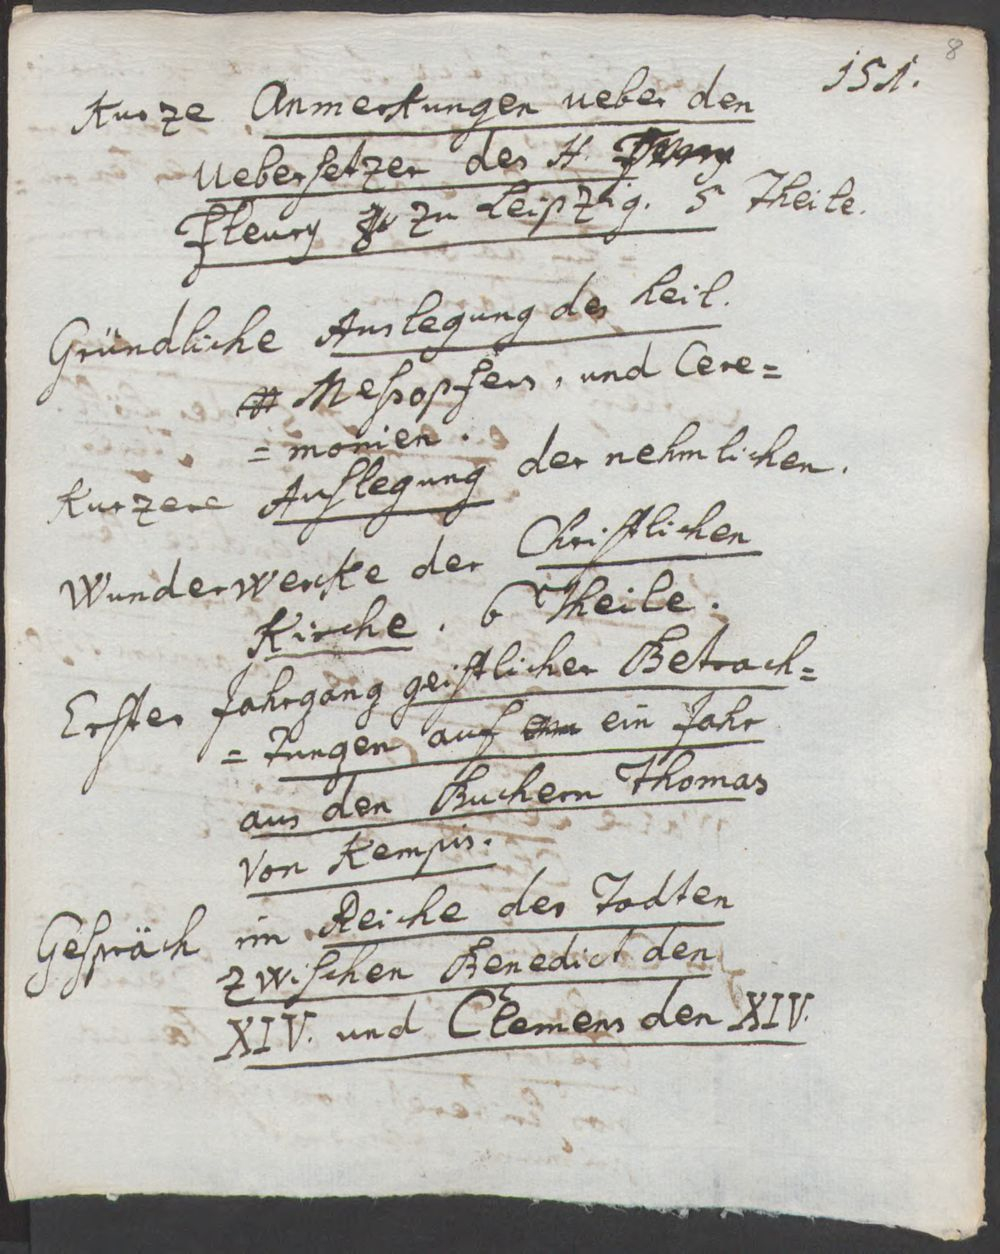 8
151.
Kurze Anmerkungen ueber den
Uebersetzer des H.
Fleury zu Leipzig. 5 Theile.
Gründliche Auslegung des heil.
Messopfers, und Cere=
=monien.
Kurzere Auslegung der nehmlichen.
Wunderwercke der Christlichen
Kirche. 6 Theile.
Erster Jahrgang geistlicher Betrach=
=tungen auf ein Jahr
aus den Buchern Thomas
von Kempis.
Gespräch im Reiche der Todten
zwischen Benedict den
XIV. und Clemens den XIV.